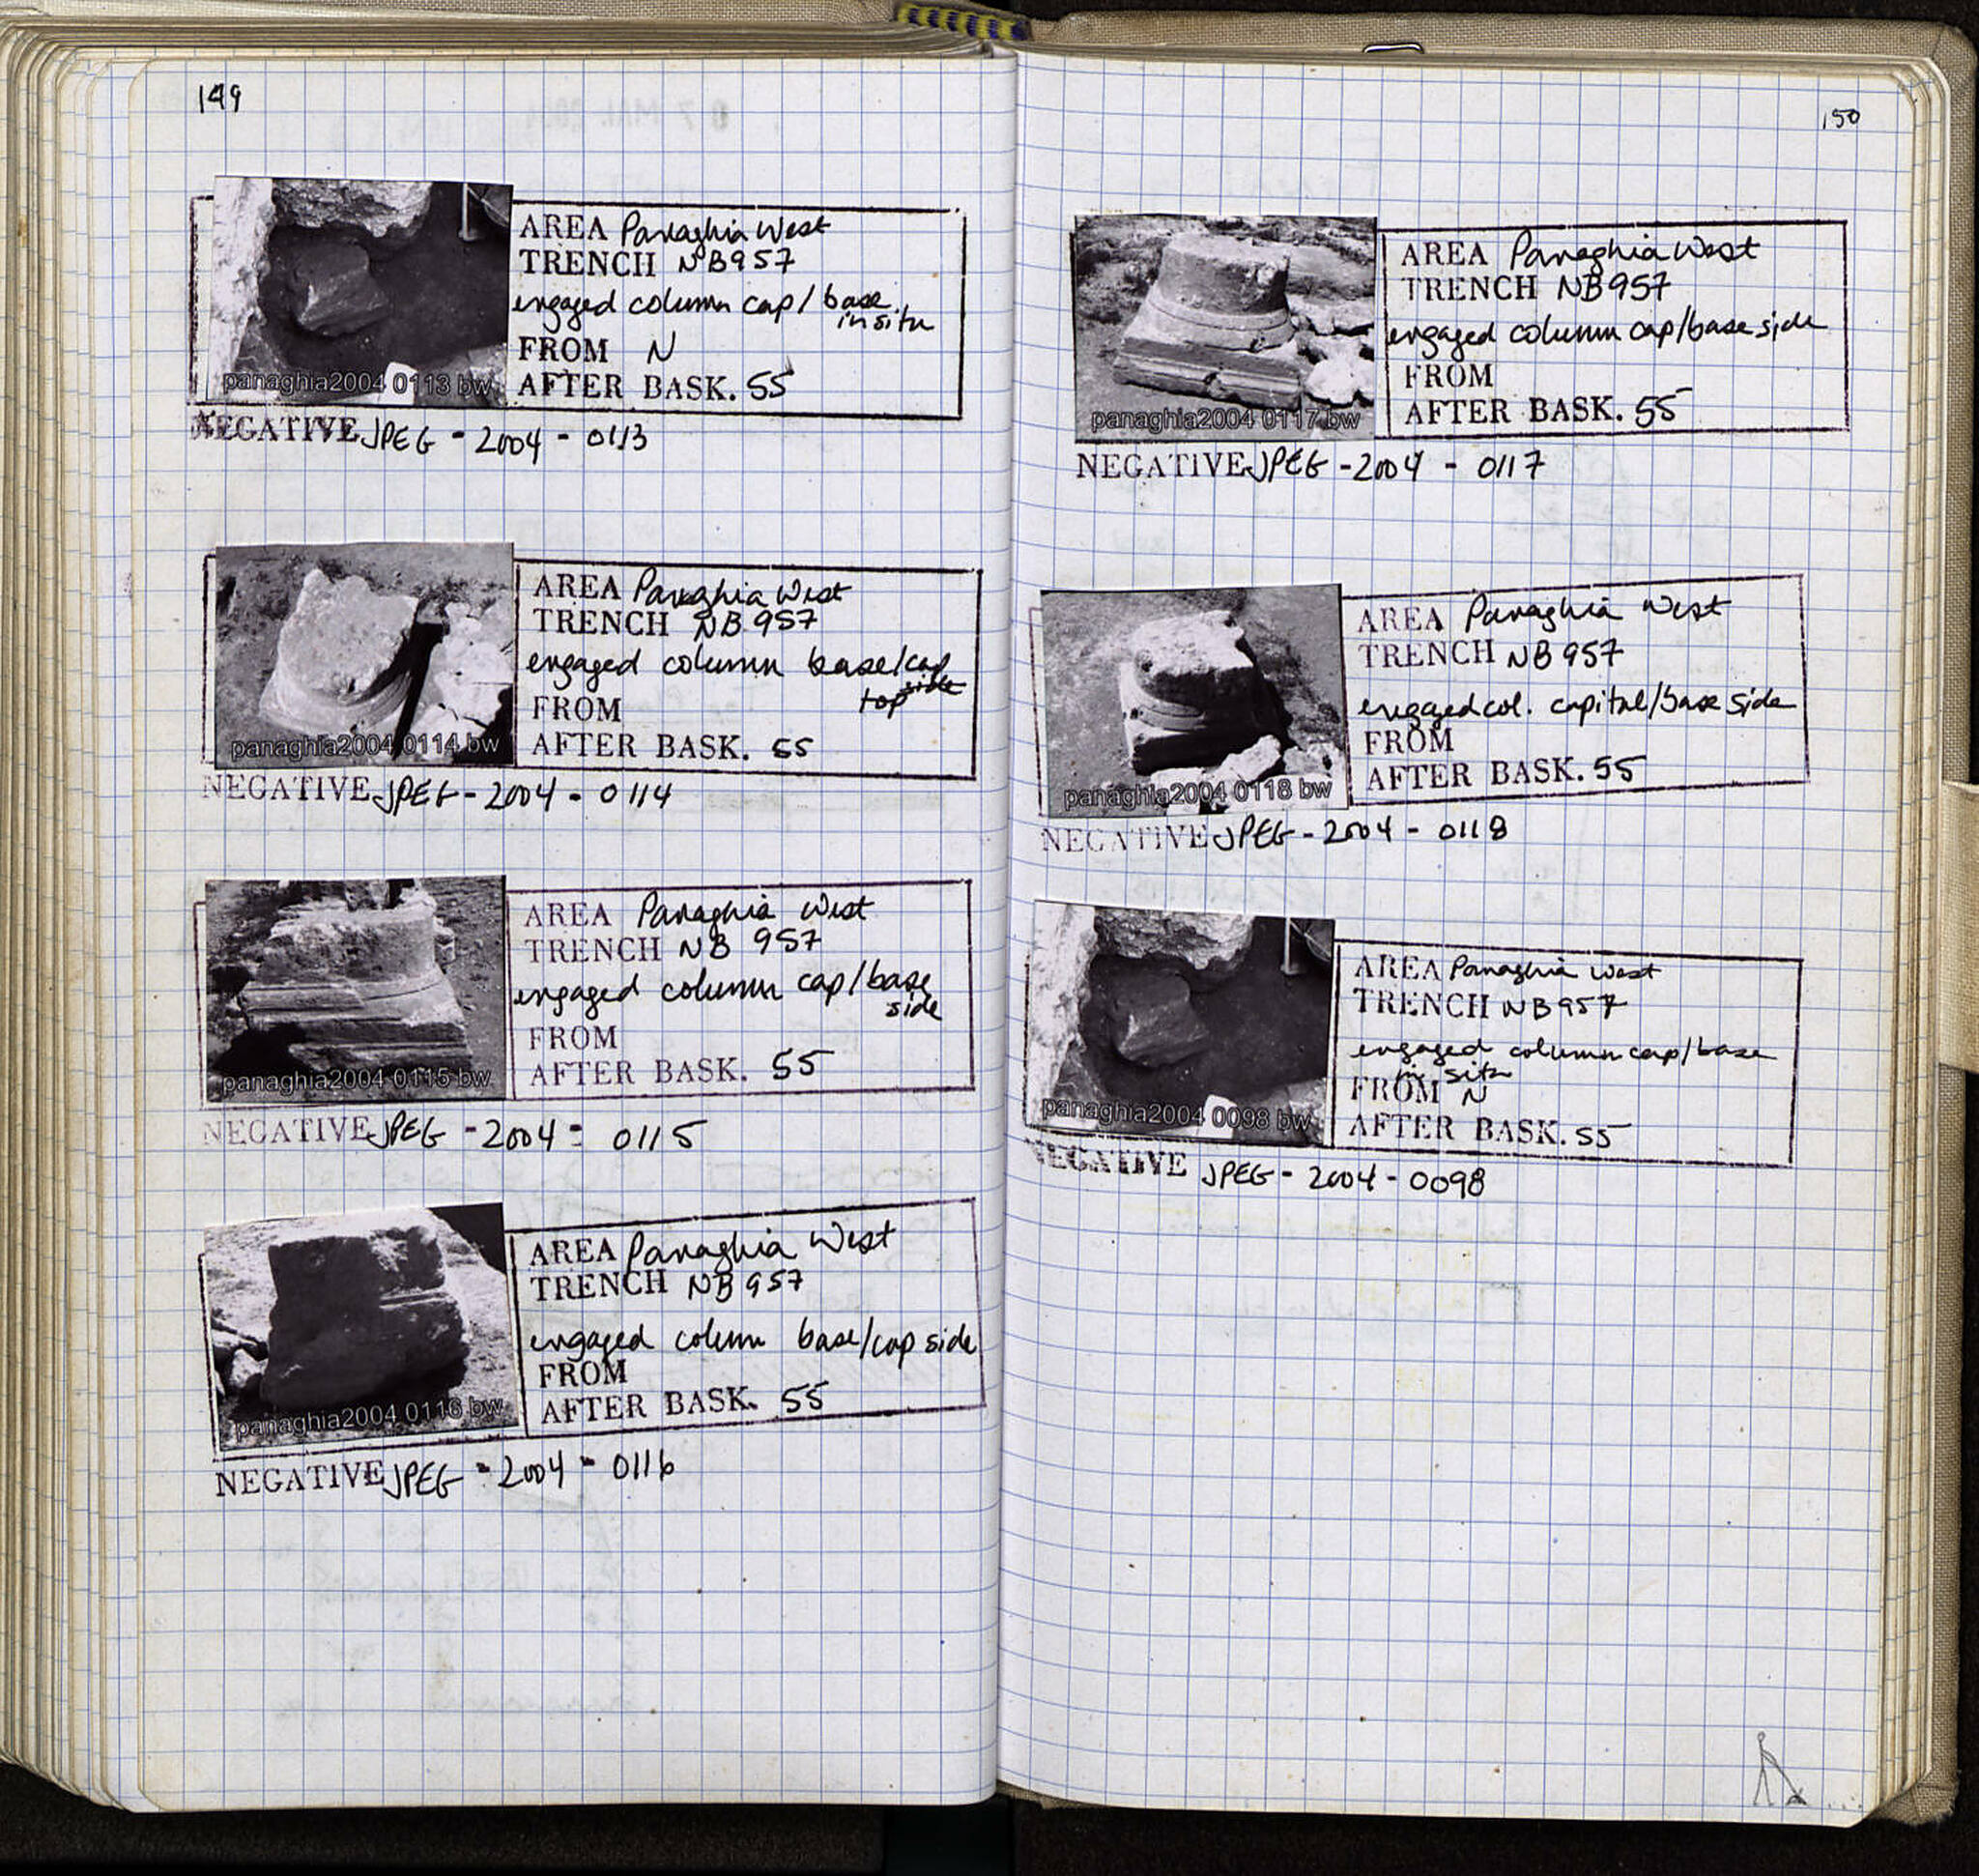 149
AREA Panaghia West
TRENCH NB957
engaged column cap/base
in situ
FROM N
AFTER BASK. 55
panaghia2004 0113 bw
NEGATIVE JPEG - 2004 - 0113
AREA Panaghia West
TRENCH NB 957
engaged column base/cap
side
top
FROM
AFTER BASK. 55
panaghia2004 0114 bw
NEGATIVE JPEG - 2004 - 0114
AREA Panaghia West
TRENCH NB 957
engaged column cap/base
side
FROM
AFTER BASK. 55
panaghia2004 0115 bw
NEGATIVE JPEG - 2004 - 0115
AREA Panaghia West
TRENCH NB957
engaged column base/cap side
FROM
AFTER BASK. 55
panaghia2004 0116 bw
NEGATIVE JPEG - 2004 - 0116
150
AREA Panaghia West
TRENCH NB957
engaged column cap/base side
FROM
AFTER BASK. 55
panaghia2004 0117 bw
NEGATIVE JPEG - 2004 - 0117
AREA Panaghia West
TRENCH NB957
engaged col. capital/base side
FROM
AFTER BASK. 55
panaghia2004 0118 bw
NEGATIVE JPEG - 2004 - 0118
AREA Panaghia West
TRENCH NB957
engaged column cap/base
in situ
FROM N
AFTER BASK. 55
panaghia2004 0098 bw
NEGATIVE JPEG - 2004 - 0098